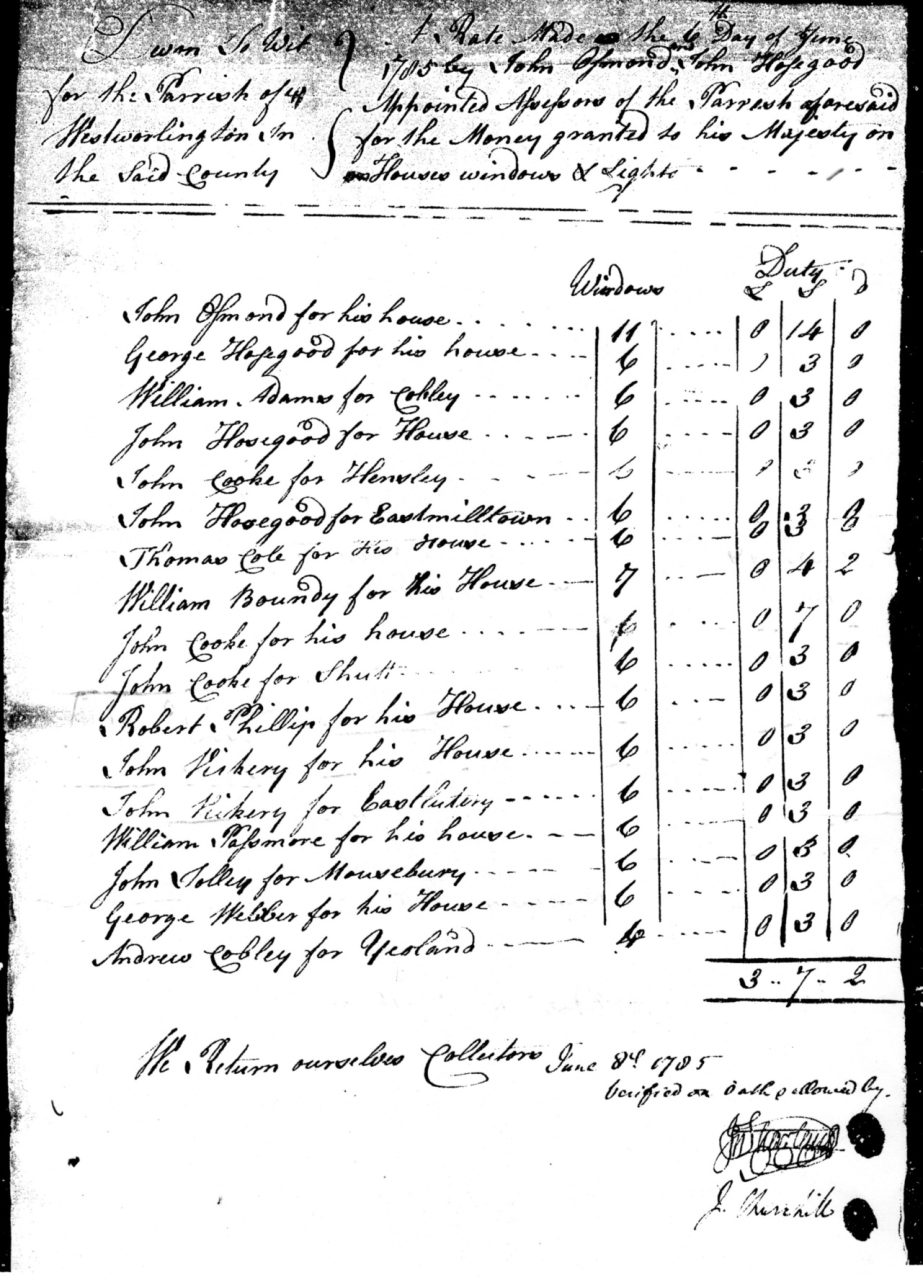 Devon To Wit
for the Parrish of
Westworlington In
the Said County
A Rate Made the 6th Day of June
1785 by John Osmond and John Hosegood
Appointed Assessors of the Parrish aforesaid
for the Money granted to his Majesty on
Houses windows & Lights
Windows Duty
L S D
John Osmond for his house 11 0 14 0
George Hosegood for his house 6 0 3 0
William Adams for Cobley 6 0 3 0
John Hosegood for House 6 0 3 0
John Cooke for Hensley 6 0 3 0
John Hosegood for Eastmilltown 6 0 3 0
Thomas Cole for His House 6 0 3 0
William Boundy for his House 7 0 4 2
John Cooke for his house 6 0 7 0
John Cooke for Shutt 6 0 3 0
Robert Phillip for his House 6 0 3 0
John Vickery for his House 6 0 3 0
John Vickery for Eastlutery 6 0 3 0
William Passmore for his house 6 0 3 0
John Tolley for Mousebury 6 0 3 0
George Webber for his House 6 0 3 0
Andrew Cobley for Yeoland 6 0 3 0
3 - 7 - 2
We Return ourselves Collectors June 8d 1785
Verified on Oath & allowed by
J. Churchill